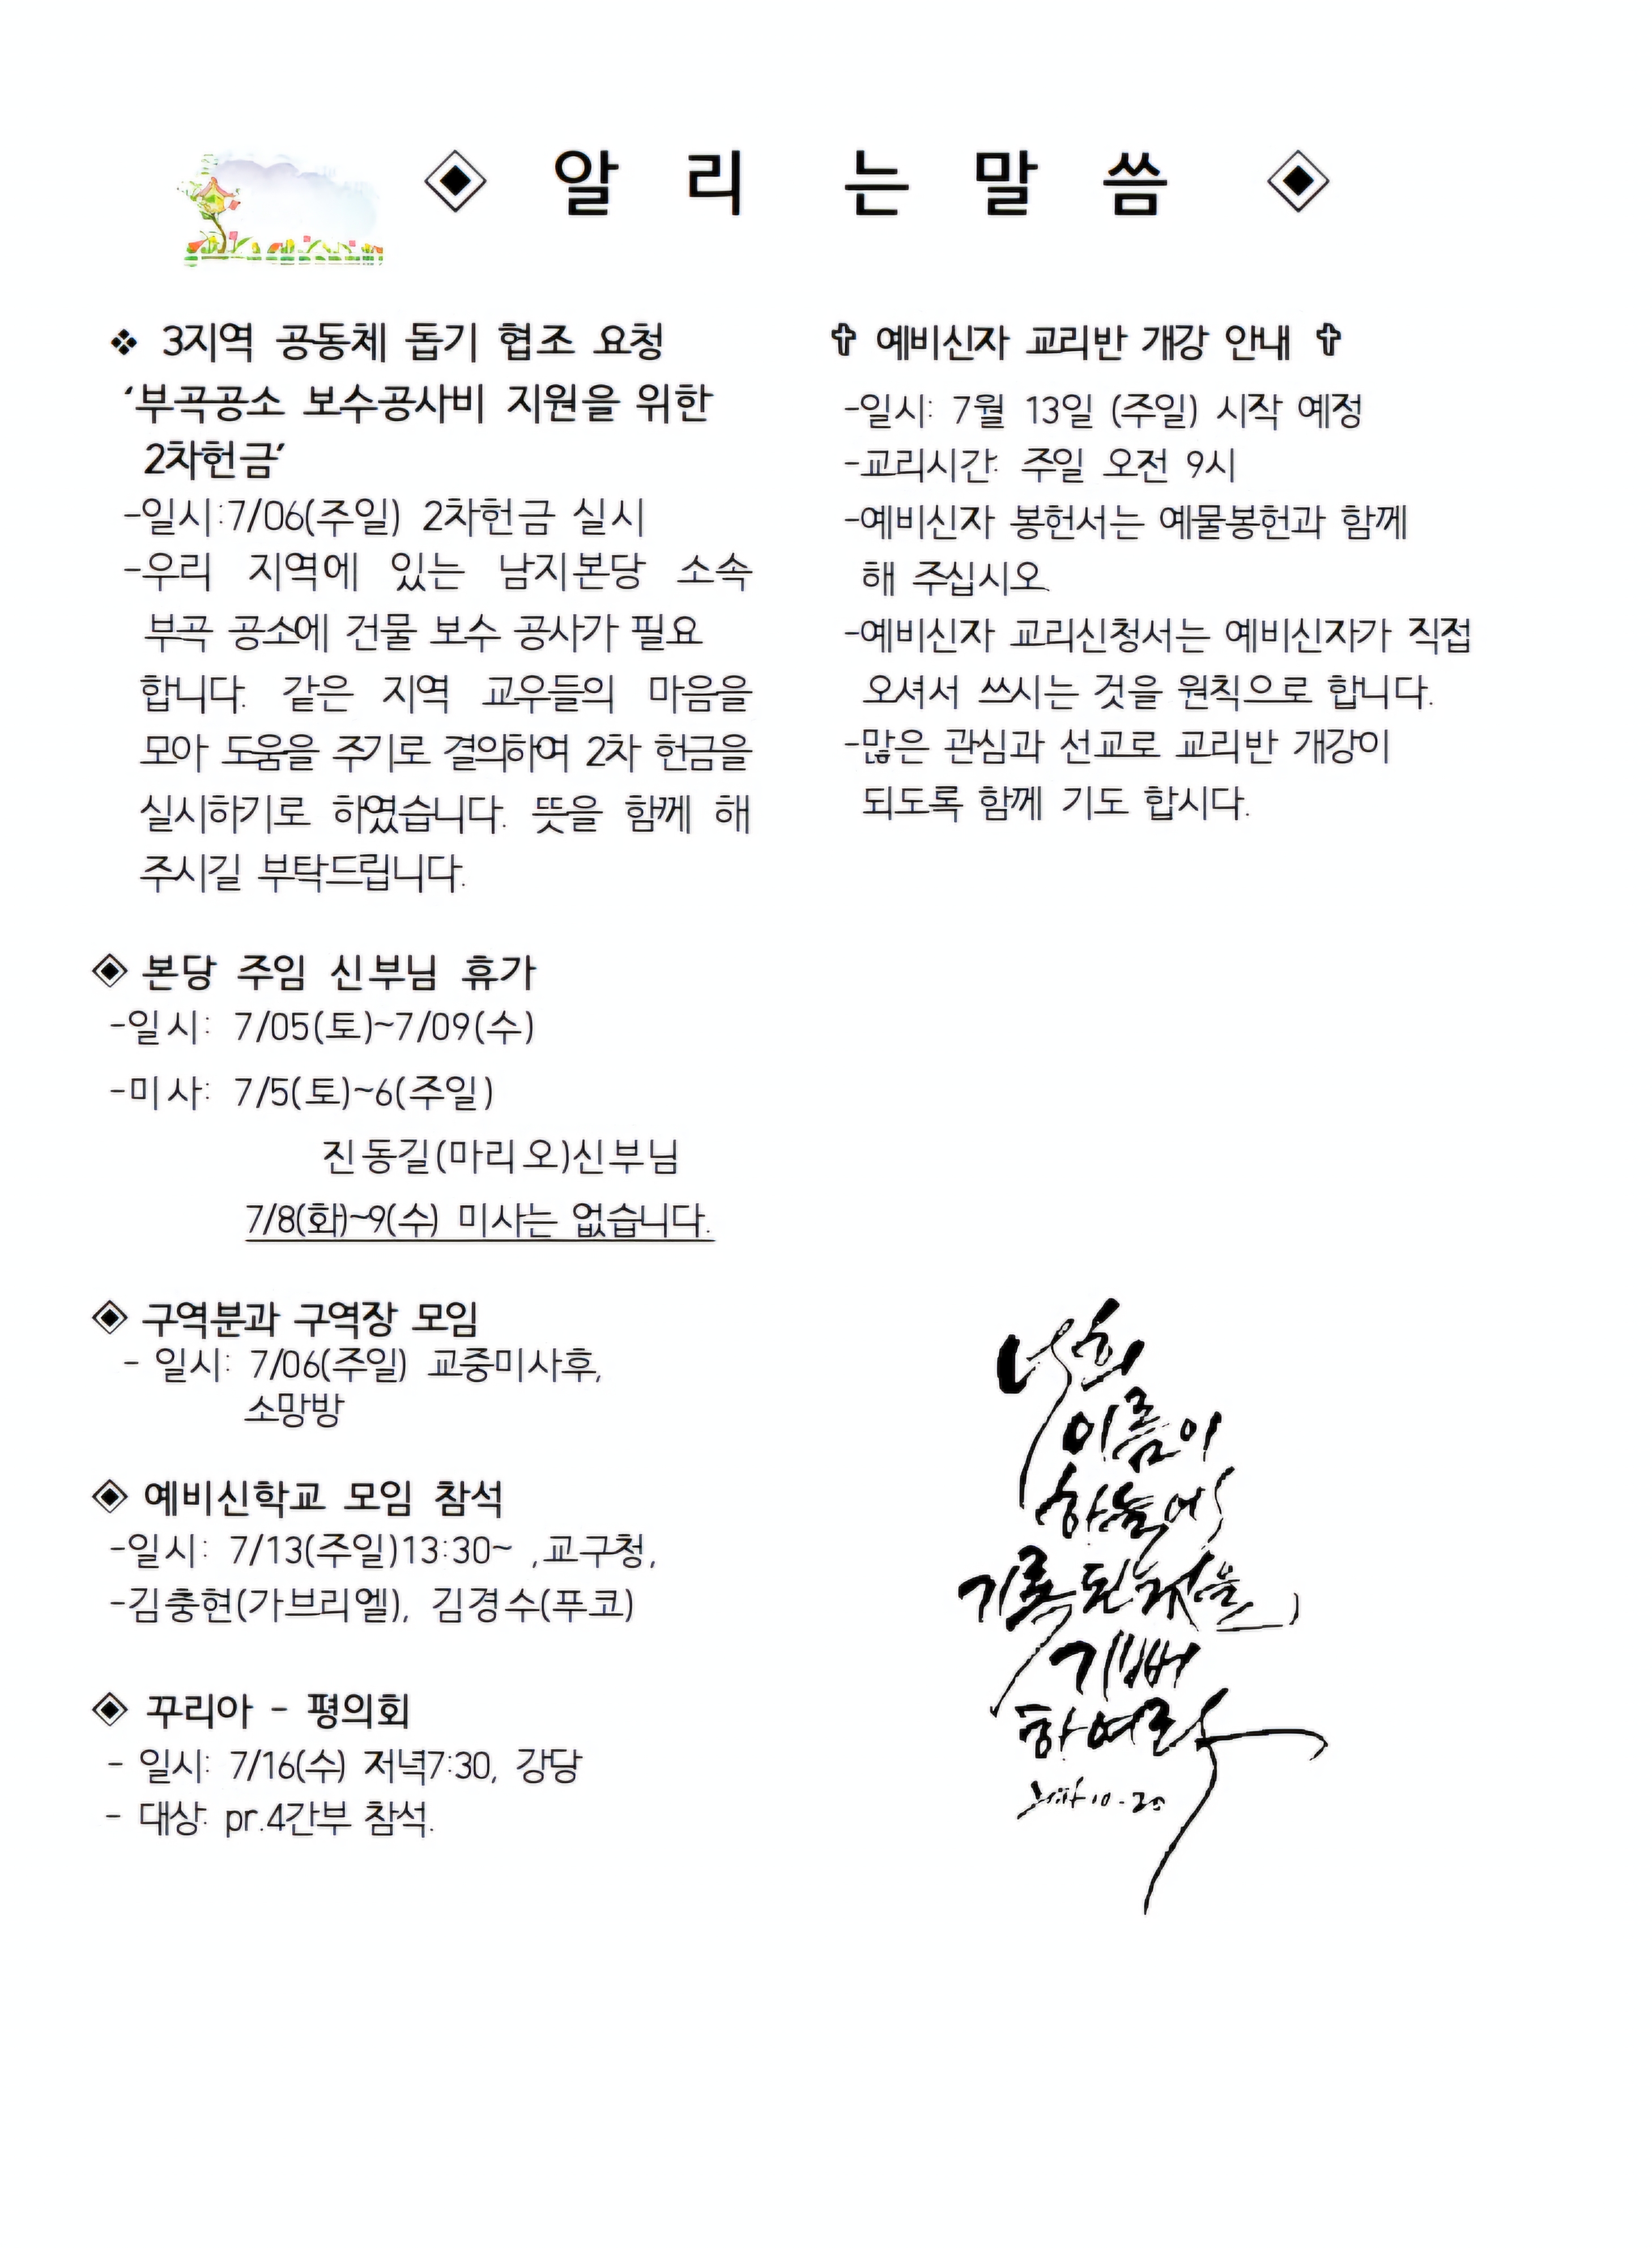 ◈ 알 리 는 말 씀 ◈
❖ 3지역 공동체 돕기 협조 요청
‘부곡공소 보수공사비 지원을 위한
2차헌금’
-일시:7/06(주일) 2차헌금 실시
-우리 지역에 있는 남지본당 소속
부곡 공소에 건물 보수 공사가 필요
합니다. 같은 지역 교우들의 마음을
모아 도움을 주기로 결의하여 2차 헌금을
실시하기로 하였습니다. 뜻을 함께 해
주시길 부탁드립니다.
◈ 본당 주임 신부님 휴가
-일시: 7/05(토)~7/09(수)
-미사: 7/5(토)~6(주일)
진동길(마리오)신부님
7/8(화)~9(수) 미사는 없습니다.
◈ 구역분과 구역장 모임
- 일시: 7/06(주일) 교중미사후,
소망방
◈ 예비신학교 모임 참석
-일시: 7/13(주일)13:30~ ,교구청,
-김충현(가브리엘), 김경수(푸코)
◈ 꾸리아 - 평의회
- 일시: 7/16(수) 저녁7:30, 강당
- 대상: pr.4간부 참석.
✞ 예비신자 교리반 개강 안내 ✞
-일시: 7월 13일 (주일) 시작 예정
-교리시간: 주일 오전 9시
-예비신자 봉헌서는 예물봉헌과 함께
해 주십시오.
-예비신자 교리신청서는 예비신자가 직접
오셔서 쓰시는 것을 원칙으로 합니다.
-많은 관심과 선교로 교리반 개강이
되도록 함께 기도 합시다.
너희
이름이
하늘에
기록된것을
기뻐
하여라